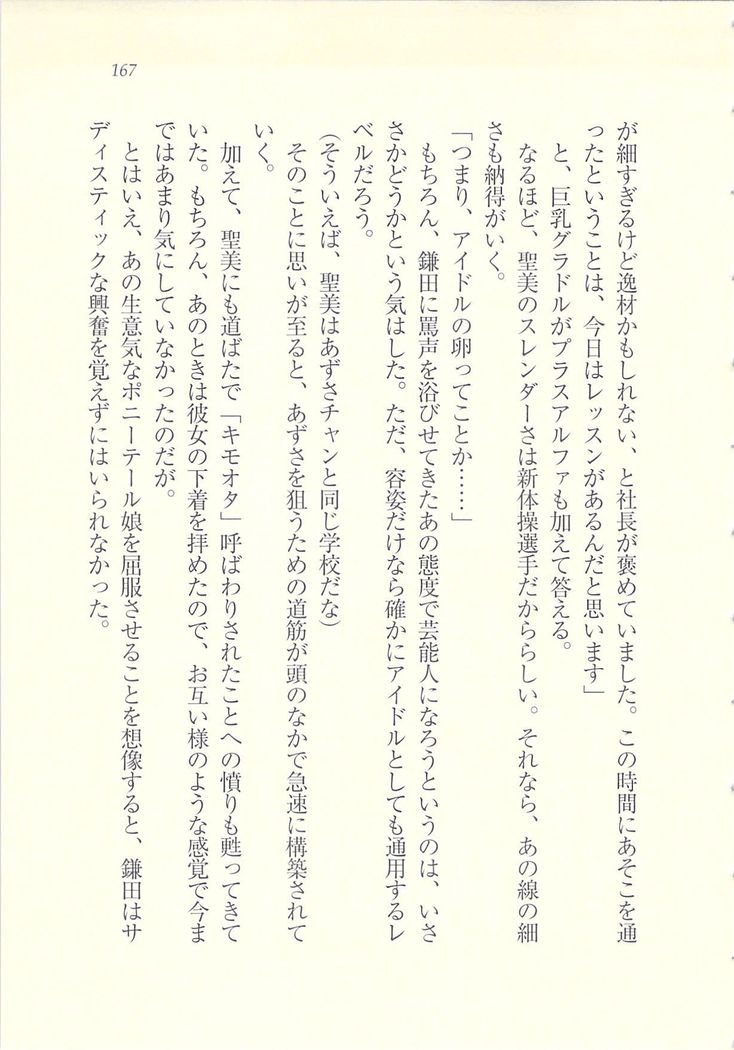 167
が細すぎるけど逸材かもしれない、と社長が褒めていました。この時間にあそこを通
ったということは、今日はレッスンがあるんだと思います」
と、巨乳グラドルがプラスアルファも加えて答える。
なるほど、聖美のスレンダーさは新体操選手だかららしい。それなら、あの線の細
さも納得がいく。
「つまり、アイドルの卵ってことか……」
もちろん、鎌田に罵声を浴びせてきたあの態度で芸能人になろうというのは、いさ
さかどうかという気はした。ただ、容姿だけなら確かにアイドルとしても通用するレ
ベルだろう。
(そういえば、聖美はあずさチャンと同じ学校だな)
そのことに思いが至ると、あずさを狙うための道筋が頭のなかで急速に構築されて
いく。
加えて、聖美にも道ばたで「キモオタ」呼ばわりされたことへの憤りも甦ってきて
いた。もちろん、あのときは彼女の下着を拝めたので、お互い様のような感覚で今ま
ではあまり気にしていなかったのだが。
とはいえ、あの生意気なポニーテール娘を屈服させることを想像すると、鎌田はサ
ディスティックな興奮を覚えずにはいられなかった。